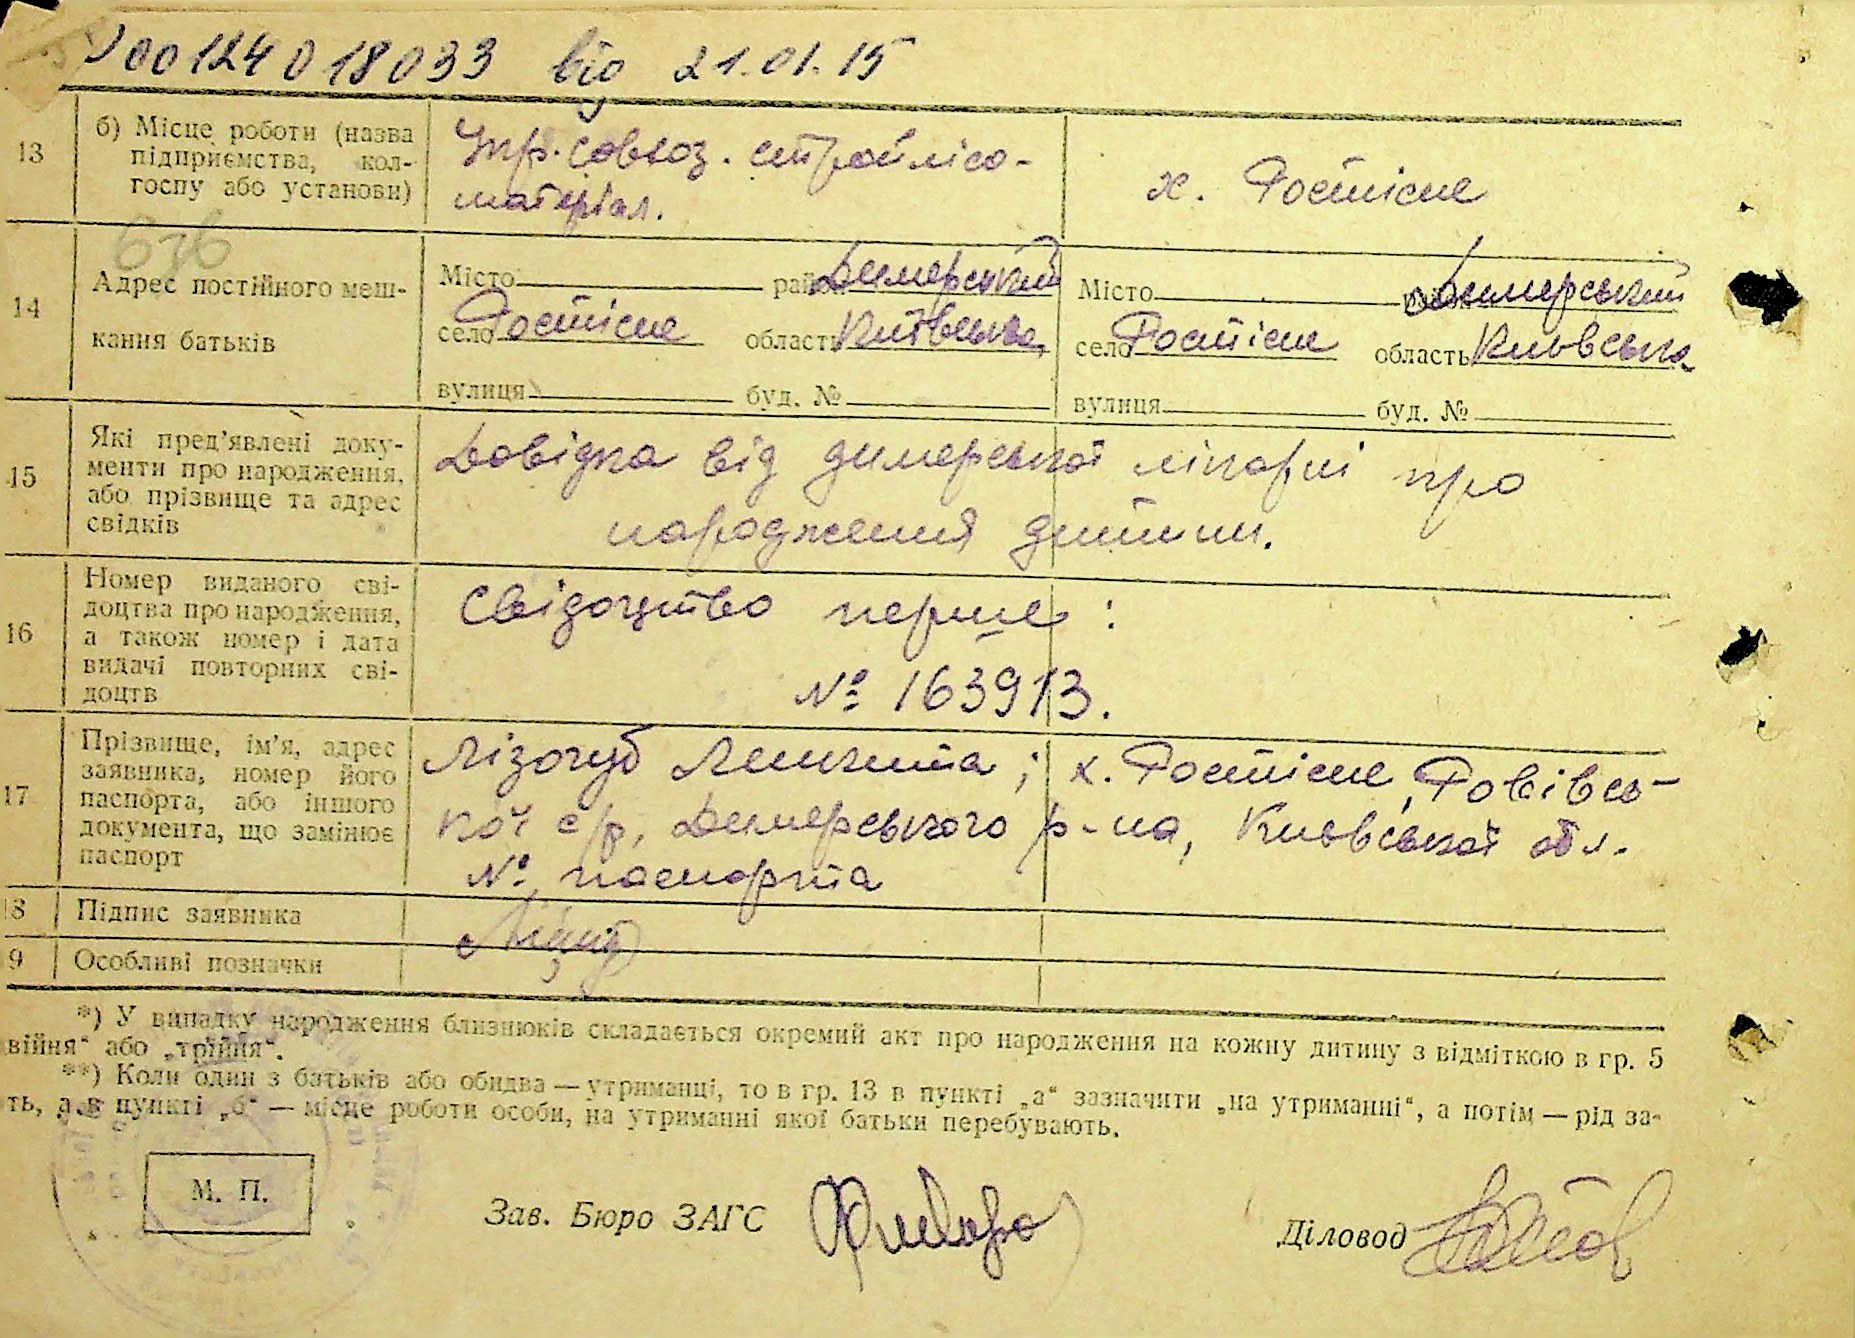 00124018033 від 21.01.15
13 б) Місце роботи (назва підприємства, колгоспу або установи)
Упр. Совхоз. стройлісо-
матеріал.
х. Ростісне
676
14 Адрес постійного меш-
кання батьків
Місто район Димерський Місто район Димерський
село Ростісне область Київська село Ростісне область Киівська
вулиця буд. № вулиця буд. №
15 Які пред'явлені доку-
менти про народження,
або прізвище та адрес
свідків
Довідка від димерської лікарні про
народження дитини.
16 Номер виданого сві-
доцтва про народження,
а також номер і дата
видачі повторних сві-
доцтв
Свідоцтво перше:
№ 163913.
17 Прізвище, ім'я, адрес
заявника, номер його
паспорта, або іншого
документа, що замінює
паспорт
Лізогуб ; х. Ростісне,
кої с/р, Димерського р-на, Киівської обл.
№ паспорта
18 Підпис заявника
9 Особливі позначки
*) У випадку народження близнюків складається окремий акт про народження на кожну дитину з відміткою в гр. 5
війня" або „трійня".
**) Коли один з батьків або обидва — утриманці, то в гр. 13 в пункті „а" зазначити „на утриманні", а потім — рід за-
ть, а в пункті „б" — місце роботи особи, на утриманні якої батьки перебувають.
М. П.
Зав. Бюро ЗАГС
Діловод